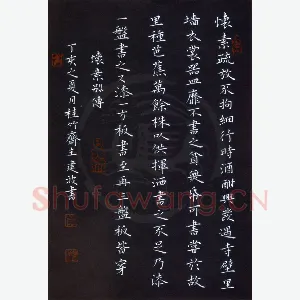 懷素疏放不拘細行時酒酣興發遇寺壁里
墻衣裳器皿靡不書之貧無紙可書嘗於故
里種芭蕉萬餘株以供揮洒書之不足乃漆
一盤書之又漆一方板書至再三盤板皆穿
懷素別傳
丁亥之夏月桂竹齋主建書
Shufawang.CN